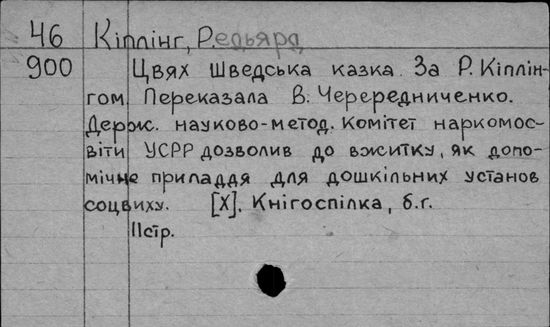 46 Кіплінг, Редьярд
900 Цвях Шведська казка. За Р. Кіплін-
гом Переказала В. Черередниченко.
Держ. науково-метод. Комітет наркомос-
віти УСРР дозволив до вжитку, як допо-
мічне приладдя для дошкільних установ
соцвиху. [Х]. Кнігоспілка, б.г.
Ілстр.